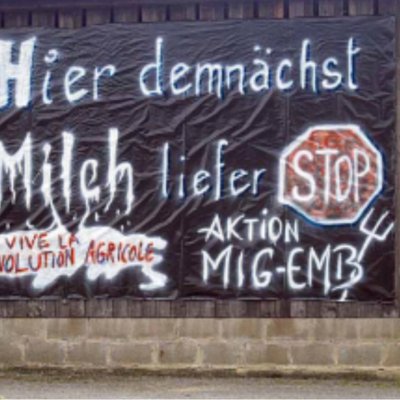 Hier demnächst
Milch liefer STOP
VIVE LA
VOLUTION AGRICOLE
AKTION
MIG-EMB